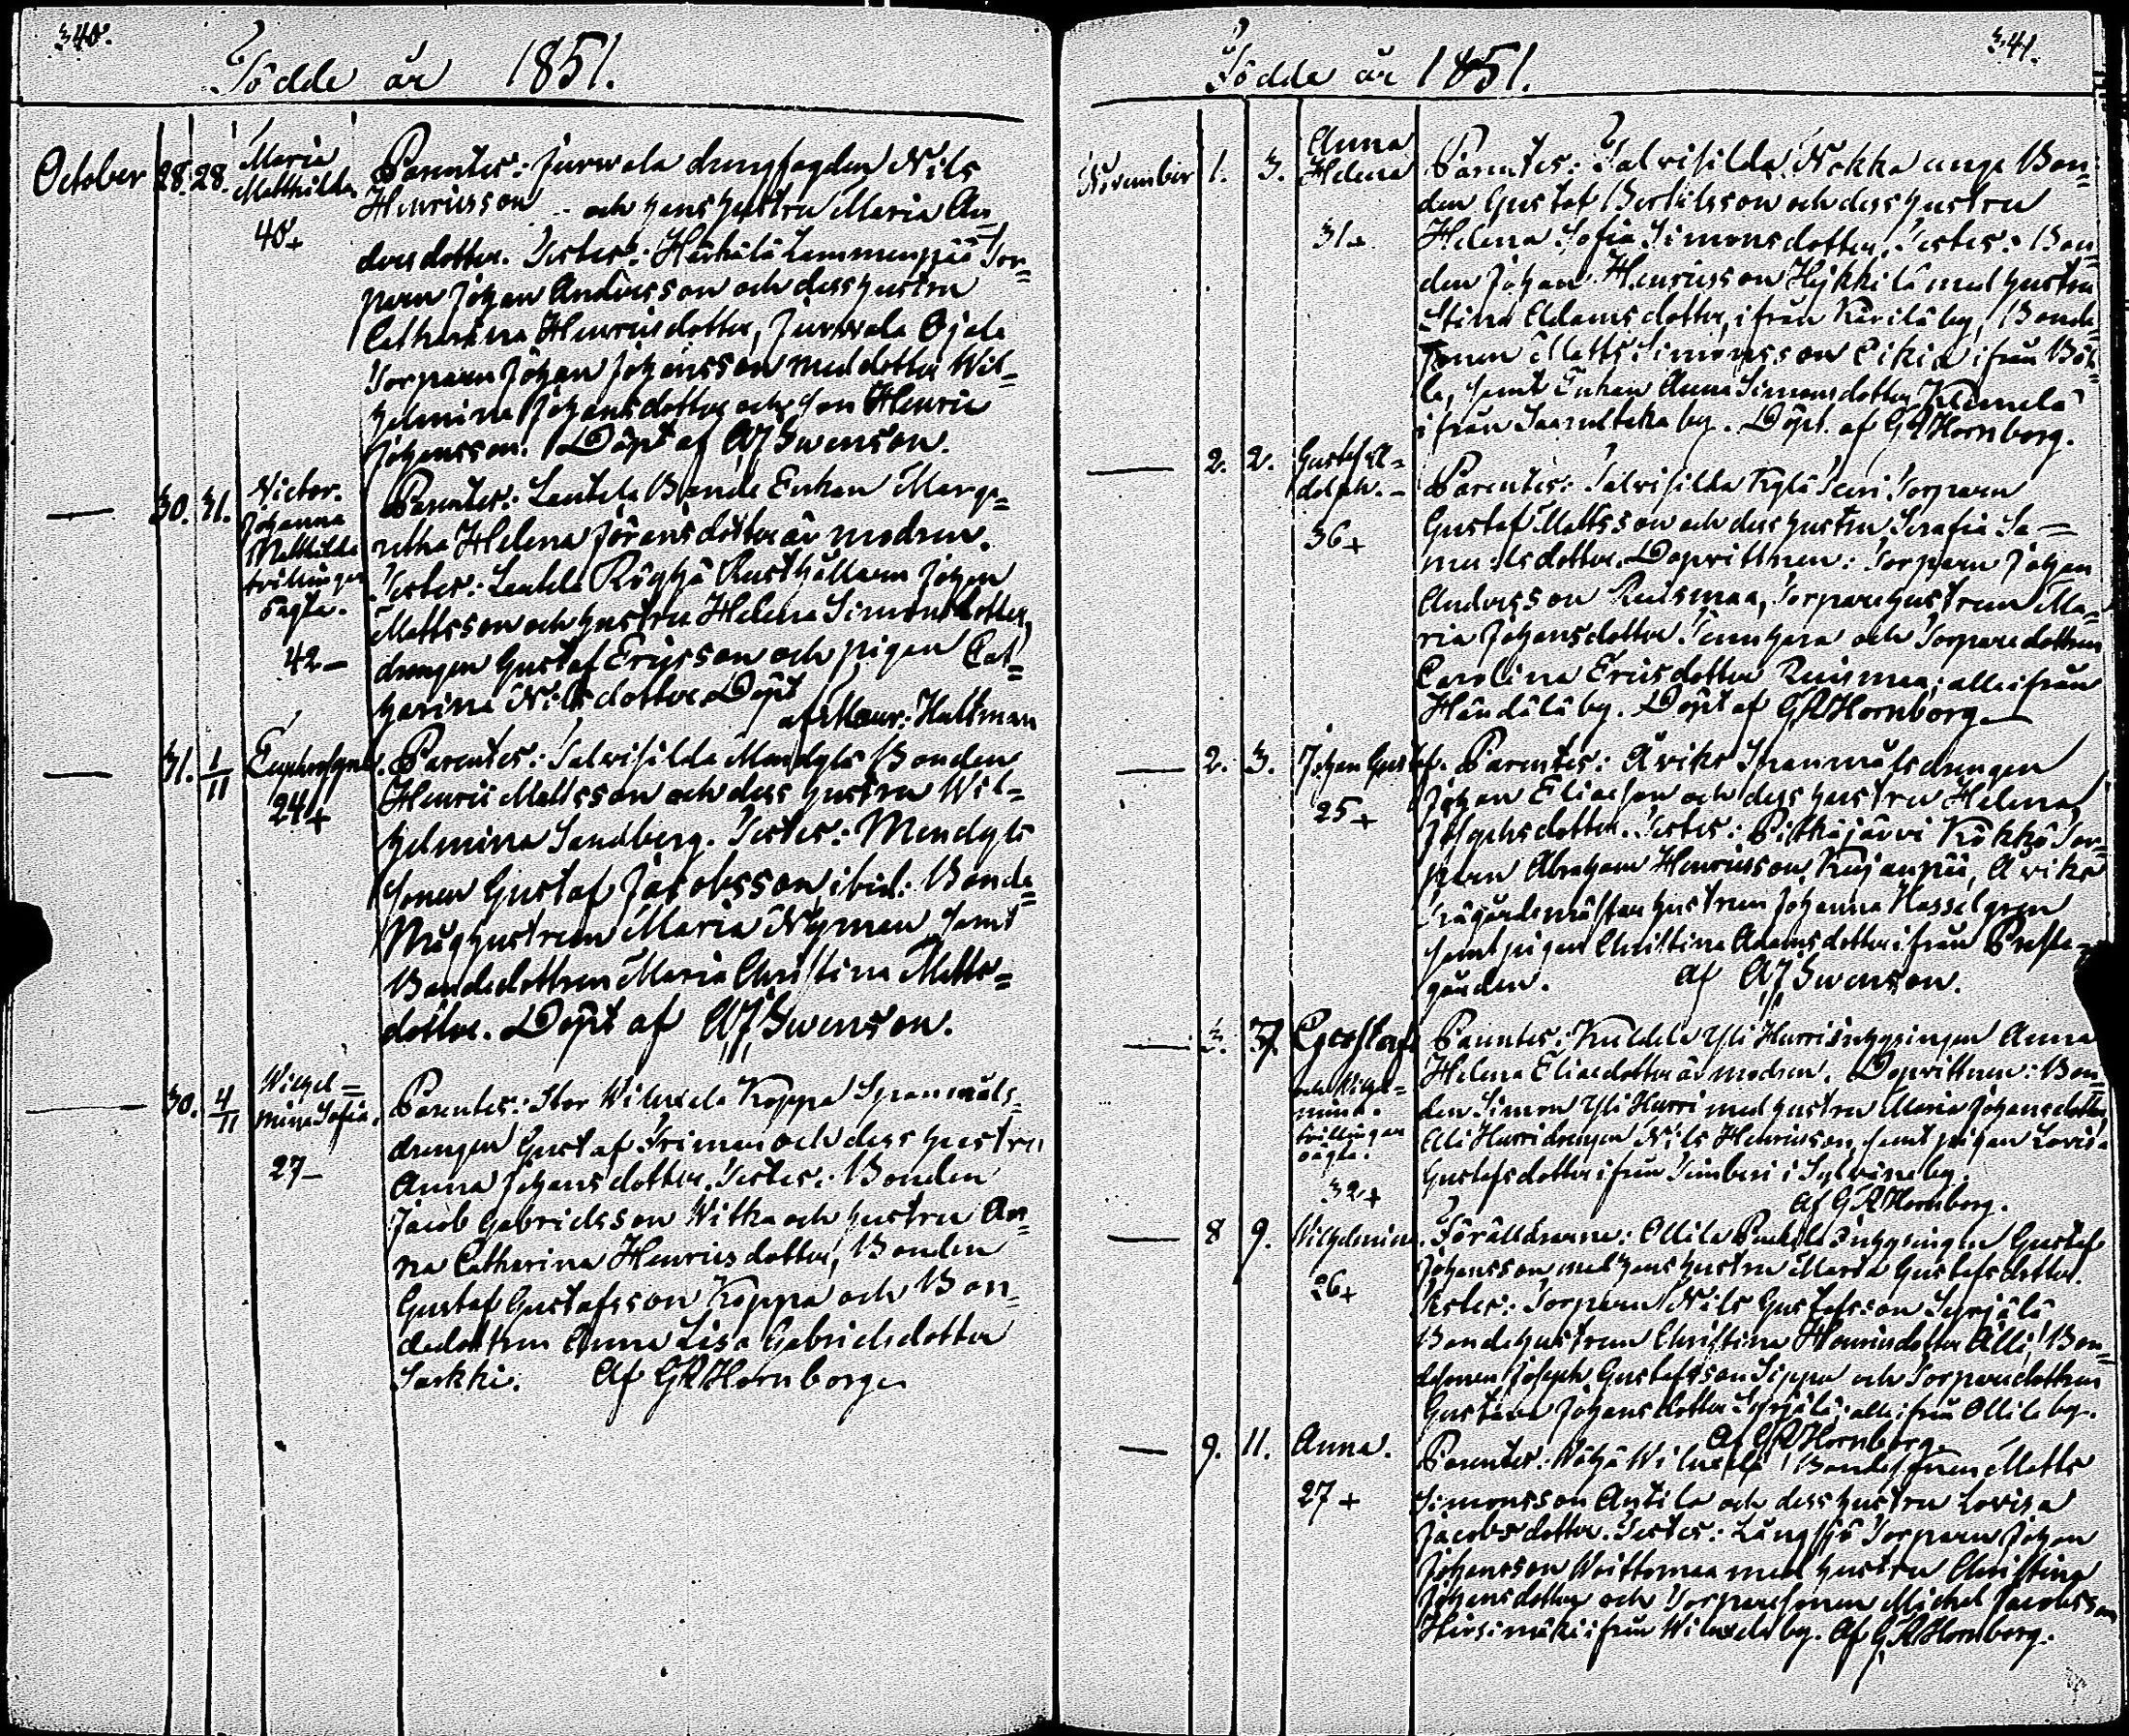 340.
Födde år 1851.
October 28. 28. Maria Mathilda 40+
Parentes: Jurvala drengfogden Nils
Henricsson och hans hustru Maria An=
dersdotter. Testes: Härkälä Lammenpää Tor=
paren Johan Andersson och dess hustru
Catharina Henricsdotter, Jurvala Ojala
Torparen Johan Johansson med dotter Wil=
helmina Johansdotter och son Henric
Johansson. Döpt af A J Swenson.
— 30. 31. Victor. Johanna Mathilda tvillingar oägta. 42—
Parentes: Lautela Bonde Enkan Marga=
retha Helena Jöransdotter är modren.
Testes: Rusthållaren Johan
Mattsson och hustru Helena Simonsdotter,
drengen Gustaf Ericsson och pigan Cat=
harina Nilsdotter. Döpt
af Hultman
— 31. 1/11 Euphrosyne. 24+
Parentes: Salvisilda Mondylä Bonden
Henric Mattsson och dess hustru Wil=
helmina Sandberg. Testes: Mondylä
sonen Gustaf Jacobsson ibid: Bonde=
Måghustrun Maria Nyman samt
Bondedottren Maria Christina Matts=
dotter. Döpt af A J Swenson.
— 30. 4/11 Wilhel=mina Sofia. 27—
Parentes: Stor Wiluxela Koppa Spanmåls=
drengen Gustaf Friman och dess hustru
Anna Johansdotter. Testes: Bonden
Jacob Gabrielsson Witka och hustru An=
na Catharina Henricsdotter, Bonden
Gustaf Gustafsson Koppa och Bon=
dedottren Anna Lisa Gabrielsdotter
Sarkki. Af G R Hornborg
341.
Födda år 1851.
November 1. 3. Anna Helena 31+
Parentes: Salvisilda Nokka unge Bon=
den Gustaf Bertilsson och dess hustru
Helena Sofia Simonsdotter. Testes: Bon=
den Johan Henricsson Hykkilä med hustru
Stina Adamsdotter, ifrån Karilä by, Bonde=
sonen Matts Simonsson ifrån
samt Enkan Anna Simonsdotter
ifrån by. Döpt af G R Hornborg.
— 2. 2. Gustaf A=dolph. — 36+
Parentes: Salvisilda Kylä Torparen
Gustaf Mattsson och dess hustru Serafia Sa=
muelsdotter. Dopvittnen: Torparen Johan
Andersson Ruismaa, Torparehustrun Ma=
ria Johansdotter och Torparedottren
Carolina Ericsdotter Ruismaa; alla ifrån
Händälä by. Döpt af G R Hornborg
— 2. 3. Johan Gustaf. 25+
Parentes: Åviks Spanmålsdrengen
Johan Eliasson och dess hustru Helena
Josephsdotter. Testes: Pitkäjärvi Kökkö Tor=
paren Abraham Henricsson Kujanpää, Åviks
Trägårdsmästarhustrun Johanna Hasselgren
samt pigan Christina Adamsdotter ifrån Preste=
gården. af A J Swenson.
— 3. 7. Gustaf och Wilhel=mina. tvillingar oägta. 32+
Parentes: Yli Hurri inhysingen Anna
Helena Eliaedotter är modren. Dopvittnen: Bon=
den Simon Yli Hurri med hustru Maria Johansdotter,
Alli Hurri drengen Nils Henricsson, samt pigan Lovisa
Gustafsdotter ifrån i by.
Af G R Hornborg.
— 8 9. Wilhelmina. 26+
Föräldrarne: Ollila inhysingen Gustaf
Johansson med hans hustru Maria Gustafsdotter.
Testes: Torparen Nils Gustafsson Syrjälä
Bondehustrun Christina Henricsdotter Alli, Bon=
desonen Joseph Gustafsson Sippa och Torparedottren
Gustava Johansdotter Syrjälä, alla ifrån Ollila by.
Af G R Hornborg
— 9. 11. Anna. 27+
Parentes: Vähä Wiluxela Bondesonen Matts
Simonsson Antila och dess hustru Lovisa
Jacobsdotter. Testes: Långsjö Torparen Johan
Johansson Woittomaa med hustru Christina
Johansdotter och Torparesonen Michel Jacobsson
Hirsimäki ifrån Wiluxela by. Af G R Hornborg.